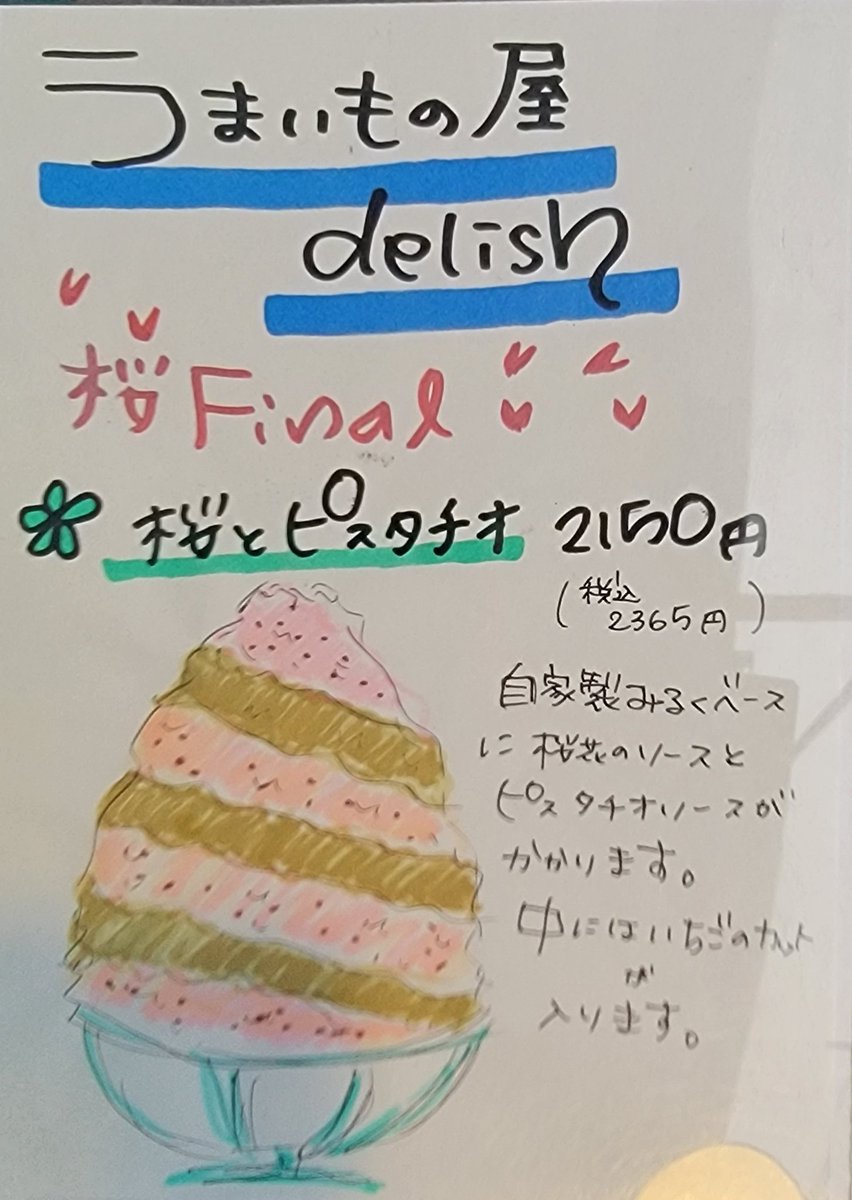 うまいもの屋
delish
桜Final
桜とピスタチオ 2150円
(税込
2365円)
自家製みるくベース
に桜花のソースと
ピスタチオソースが
かかります。
中にはいちごのカット
が
入ります。